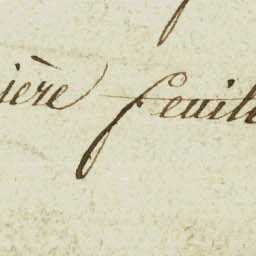 ière feuille